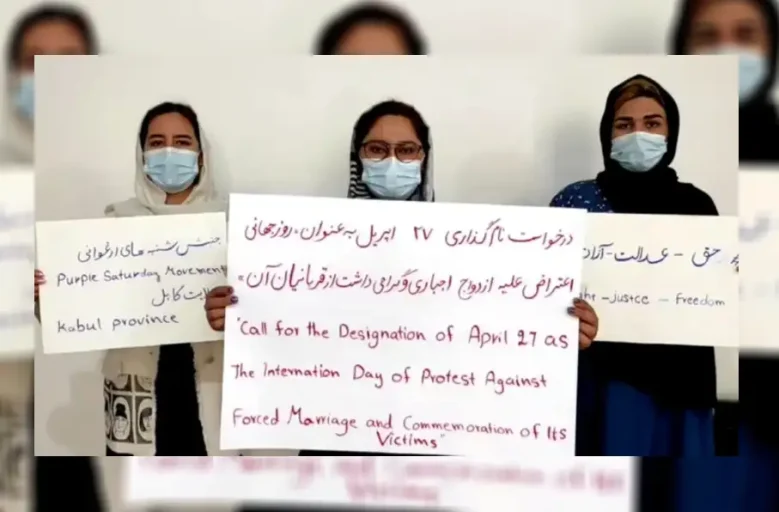 جنبش شنبه های ارغوانی
Purple Saturday Movement
ولایت کابل
Kabul province
درخواست نام گذاری ۲۷ اپریل به عنوان، روز جهانی
اعتراض علیه ازدواج اجباری و گرامی داشت از قربانیان آن"
"Call for the Designation of April 27 as
The Internation Day of Protest Against
Forced Marriage and Commemoration of Its
Victims"
حق - عدالت - آزاد
- Justce - Freedom